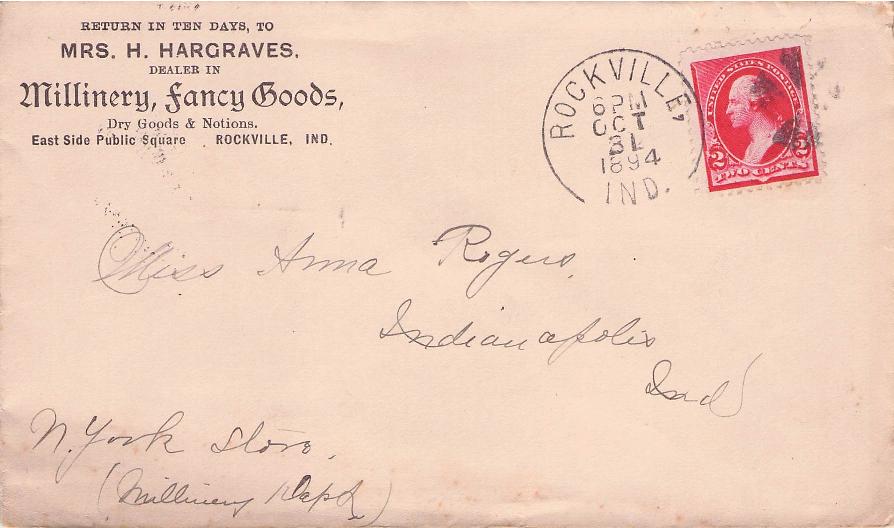 RETURN IN TEN DAYS, TO
MRS. H. HARGRAVES,
DEALER IN
Millinery, Fancy Goods,
Dry Goods & Notions.
East Side Public Square ROCKVILLE, IND.
ROCKVILLE,
6 PM
OCT
1894
IND.
UNITED STATES POSTAGE
2 2
TWO CENTS
Miss Anna Rogers,
Indianapolis
Ind
N. York Store,
(Millinery Dept)